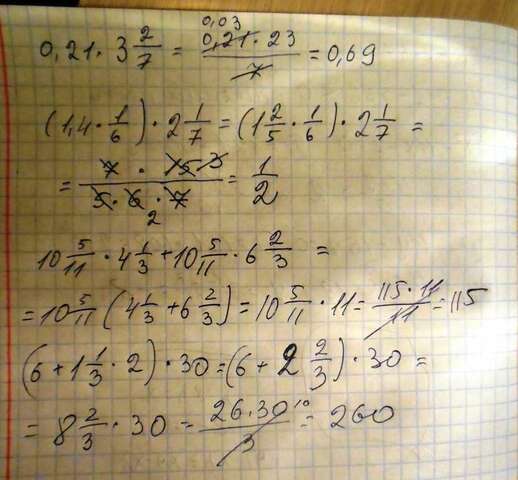 0,21 · 3 2/7 = 0,03 0,21 · 23 / 7 = 0,69
(1,4 · 1/6) · 2 1/7 = (1 2/5 · 1/6) · 2 1/7 =
= 7 · 15 3 / 5 · 6 2 · 7 = 1/2
10 5/11 · 4 1/3 + 10 5/11 · 6 2/3 =
= 10 5/11 (4 1/3 + 6 2/3) = 10 5/11 · 11 = 115 · 11 / 11 = 115
(6 + 1 1/3 · 2) · 30 = (6 + 2 2/3) · 30 =
= 8 2/3 · 30 = 26 · 30 10 / 3 = 260